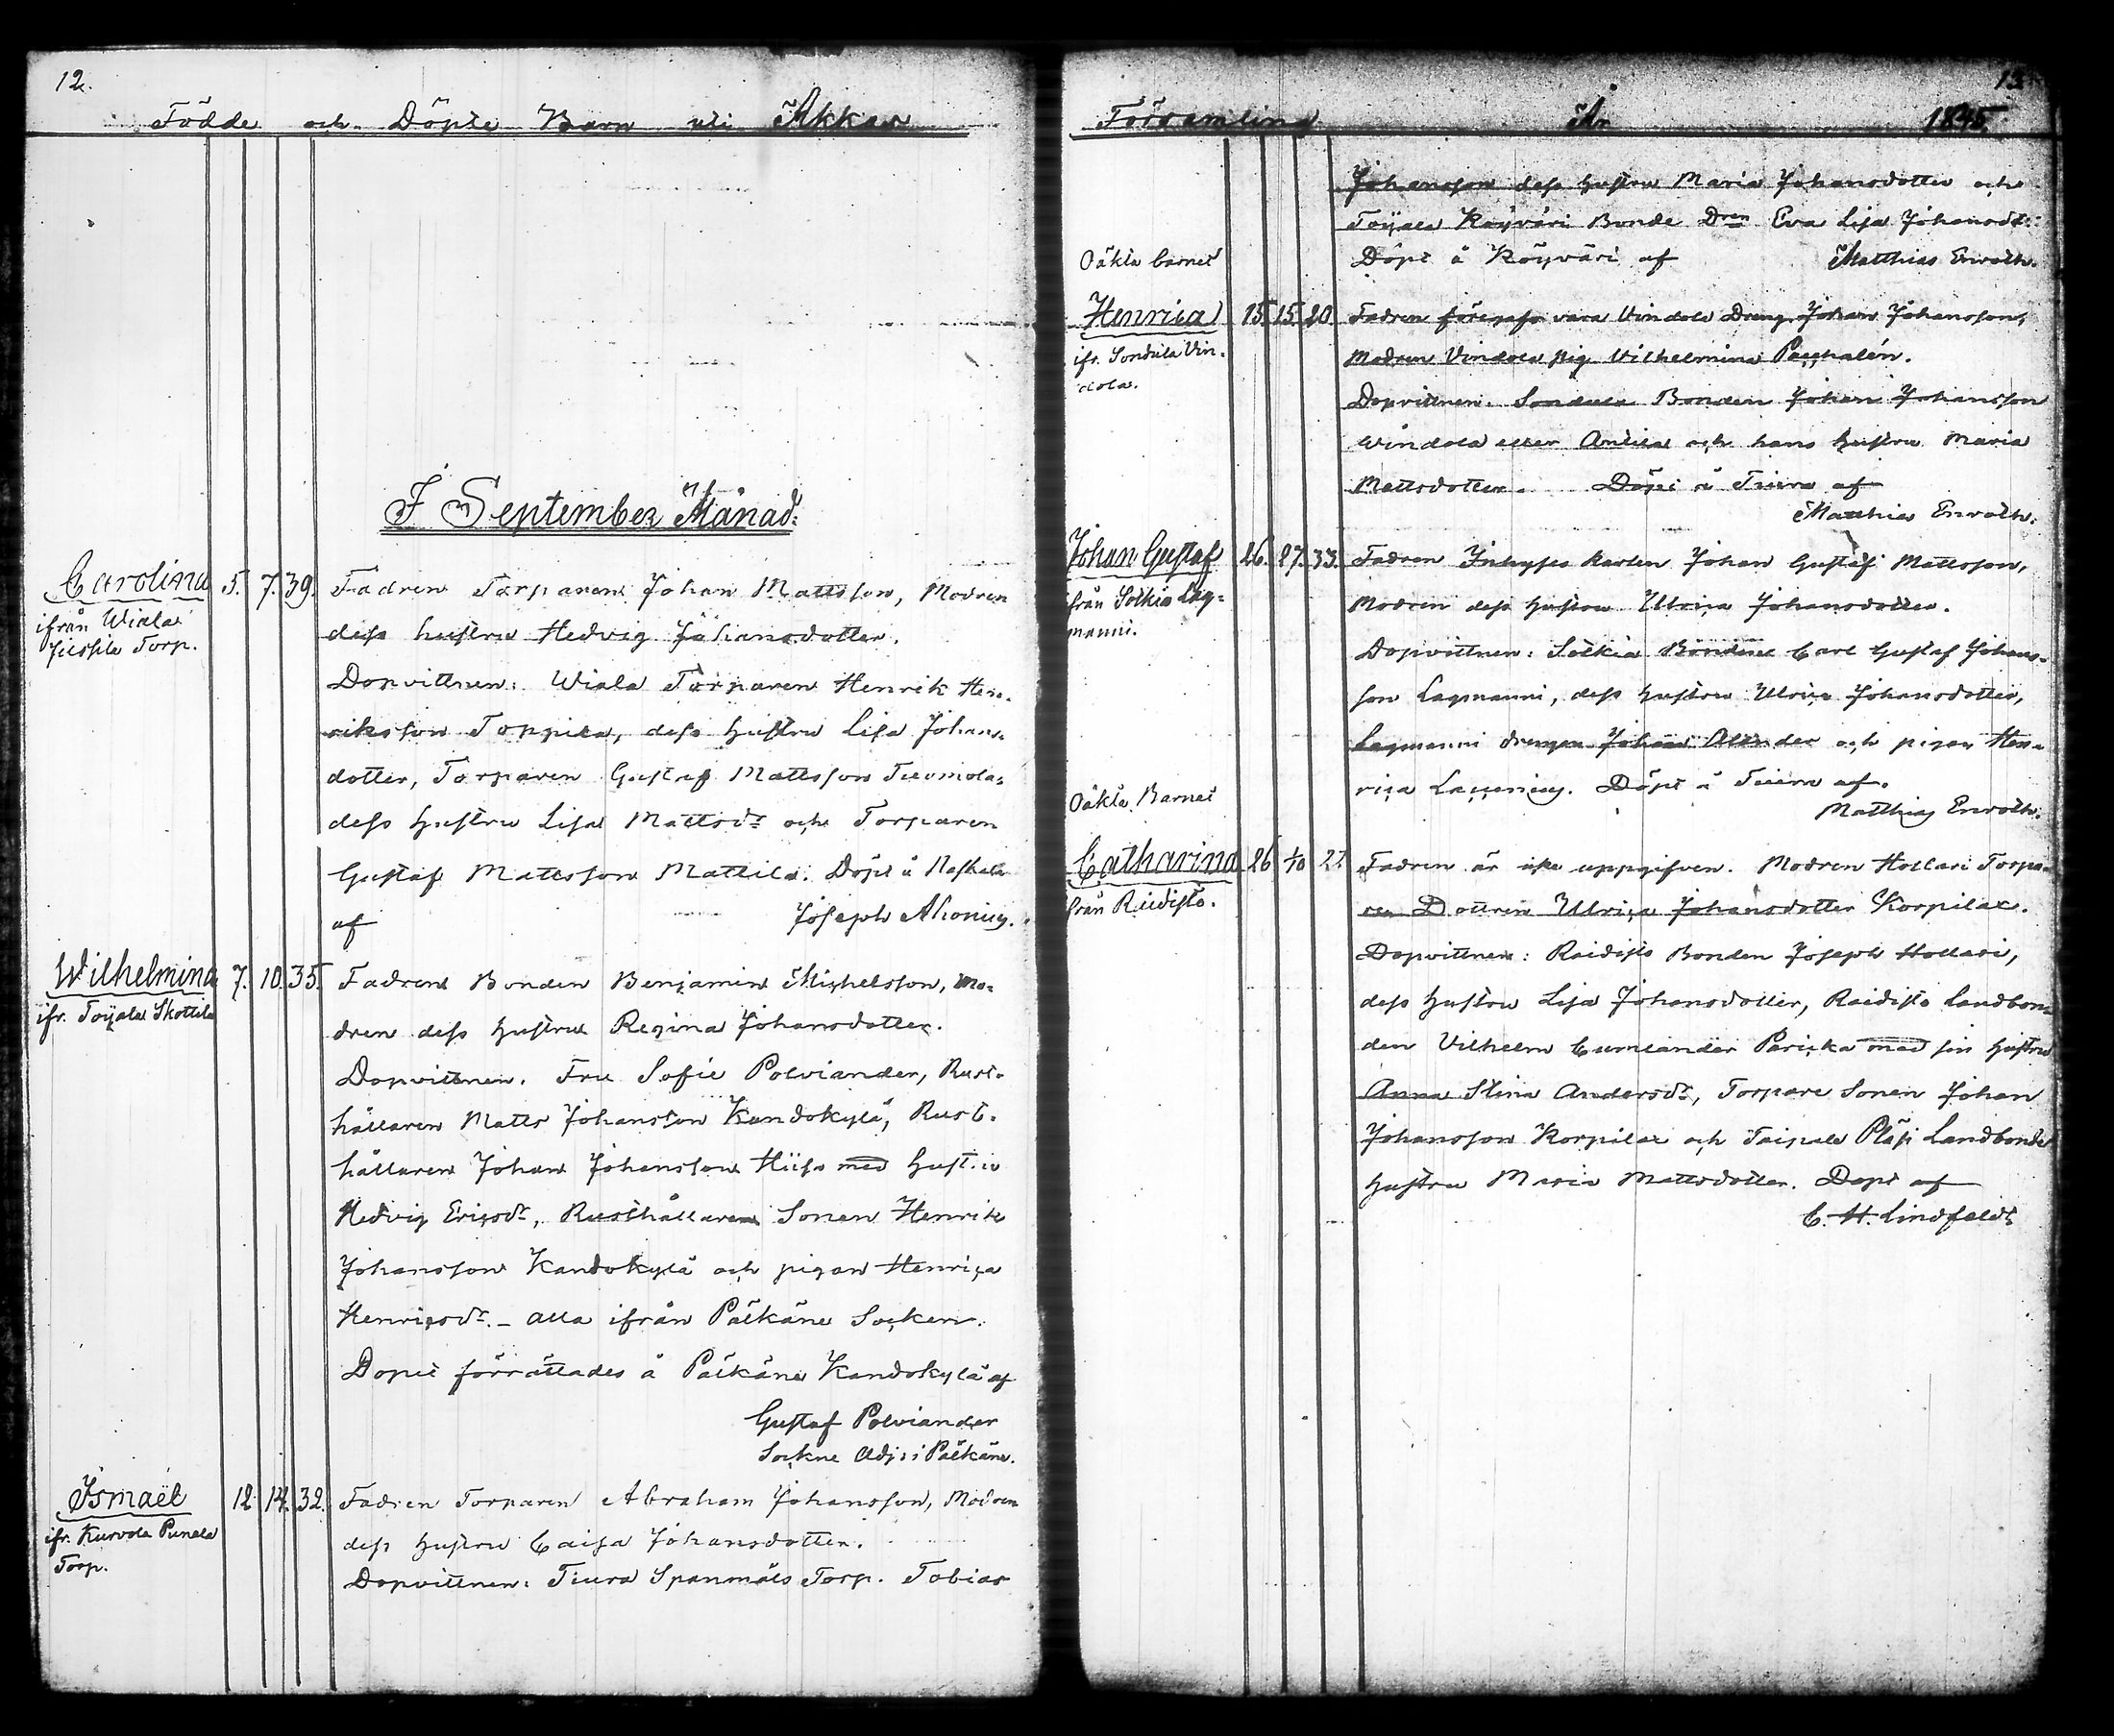 12.
Födde och Döpte Barn uti Akkas
I September Månad:
Carolina 5. 7. 39. Fadren Torparen Johan Mattsson, Modren
ifrån Wiala
Torp.
dess hustru Hedvig Johansdotter.
Dopvittnen: Wiala Torparen Henrik Hen-
riksson Toppila, dess hustru Lisa Johans-
dotter, Torparen Gustaf Mattsson Tuomola,
dess hustru Lisa Mattsdr och Torparen
Gustaf Mattsson Mattila. Döpt å
af Joseph Ahonius.
Wilhelmina 7. 10. 35. Fadren Bonden Benjamin Michelsson, Mo-
ifr. Toijala Skottila
dren dess hustru Regina Johansdotter.
Dopvittnen. Fru Sofie Polviander, Rust-
hållaren Matts Johansson Kandokylä, Rust-
hållaren Johan Johansson Hiiso med hustru
Hedvig Ericsdr, Rusthållaren Sonen Henrik
Johansson Kandokylä och pigan Henrica
Henricsdr. - Alla ifrån Pälkäne Socken.
Dopet förrättades å Pälkäne Kandokylä af
Gustaf Polviander
Sockne Adj: i Pälkäne.
Ismaël 12. 14. 32. Fadren Torparen Abraham Johansson, Modren
ifr. Kurvola Punala
Torp.
dess hustru Caisa Johansdotter.
Dopvittnen: Tiura Spanmäls Torp. Tobias
13
Församling År 1845.
Johansson dess hustru Maria Johansdotter och
Toijala Köyväri Bonde Dren Eva Lisa Johansdr:
Döpt å Köyväri af Matthias Enroth.
Oäkta barnet
Henrica 15. 15. 20. Fadren föregafs vara Vindola Dreng Johan Johansson,
ifr. Sondula Vin-
dola.
Modren Vindola pig. Vilhelmina Pacchalén.
Dopvittnen. Sondula Bonden Johan Johansson
Windola eller Anttila och hans hustru Maria
Mattsdotter. Döpt å Tiura af
Matthias Enroth.
Johan Gustaf 26. 27. 33. Fadren Inhyses karlen Johan Gustaf Mattsson,
från Sotkia Lag-
manni.
Modren dess hustru Ulrica Johansdotter.
Dopvittnen: Sotkia Bonden Carl Gustaf Johans-
son Lagmanni, dess hustru Ulrica Johansdotter,
Lagmanni drengen Johan och pigan Hen-
rica Döpt å Tiura af.
Matthias Enroth.
Oäkta Barnet
Catharina 26 1/10 27. Fadren är icke uppgifven. Modren Hollari Torpa-
från Riidisto.
ren Dottren Ulrica Johansdotter Korpilax.
Dopvittnen: Riidisto Bonden Joseph Hollari,
dess hustru Lisa Johansdotter, Riidisto Landbon-
den Vilhelm Cumlander Paricka med sin hustru
Anna Stina Andersdr, Torpare Sonen Johan
Johansson Korpilax och Taipale Pläsi Landbonde
hustru Maria Mattsdotter. Döpt af
C. H. Lindfeldt.